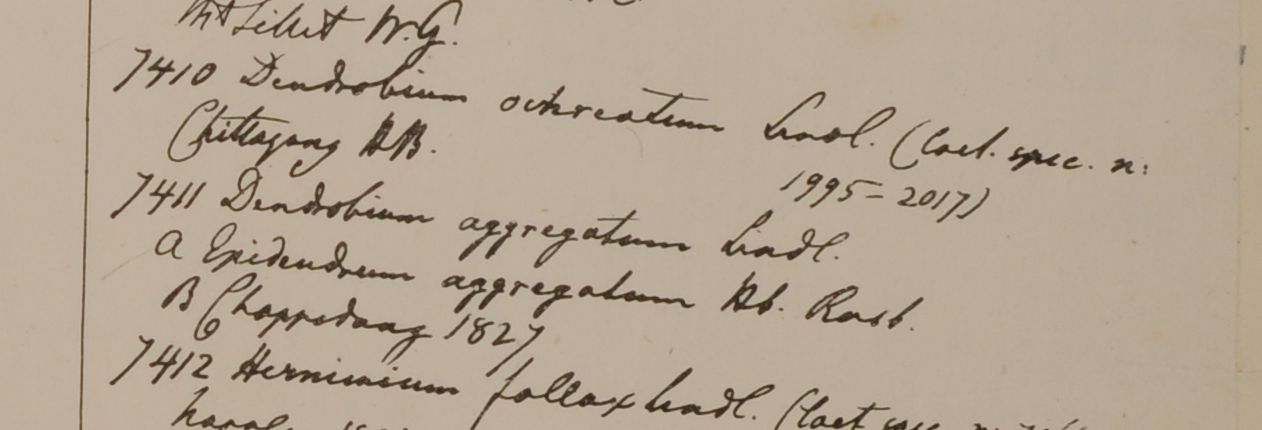 Mt Sillet W.G.
7410 Dendrobium ochreatum Lindl. (Cael. spec. n:
1995-2017)
Chittagong H.B.
7411 Dendrobium aggregatum Lindl.
a Epidendrum aggregatum Hb. Roxb.
B Chappedong 1827
7412 Herminium fallax Lindl.